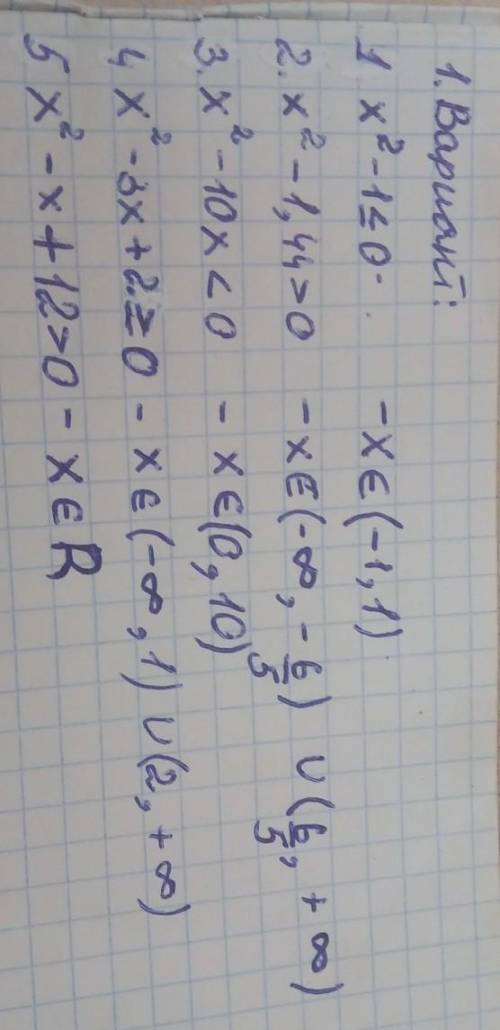 1. Вариант:
1 x² - 1 ≤ 0 - x ∈ (-1, 1)
2. x² - 1,44 > 0 - x ∈ (-∞, -6/5) ∪ (6/5, +∞)
3. x² - 10x < 0 - x ∈ (0, 10)
4 x² - 3x + 2 ≥ 0 - x ∈ (-∞, 1) ∪ (2, +∞)
5 x² - x + 12 > 0 - x ∈ R